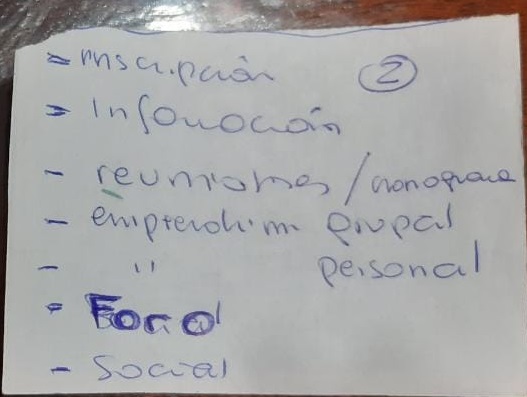 - Inscripción ②
- Información
- reuniones / cronograma
- emprendim grupal
- " personal
- Focal
- Social